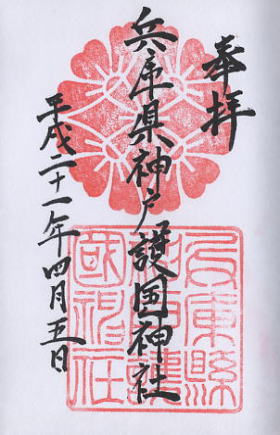 奉拝
兵庫県神戸護国神社
平成二十一年四月五日
兵庫縣
神戸護
國神社